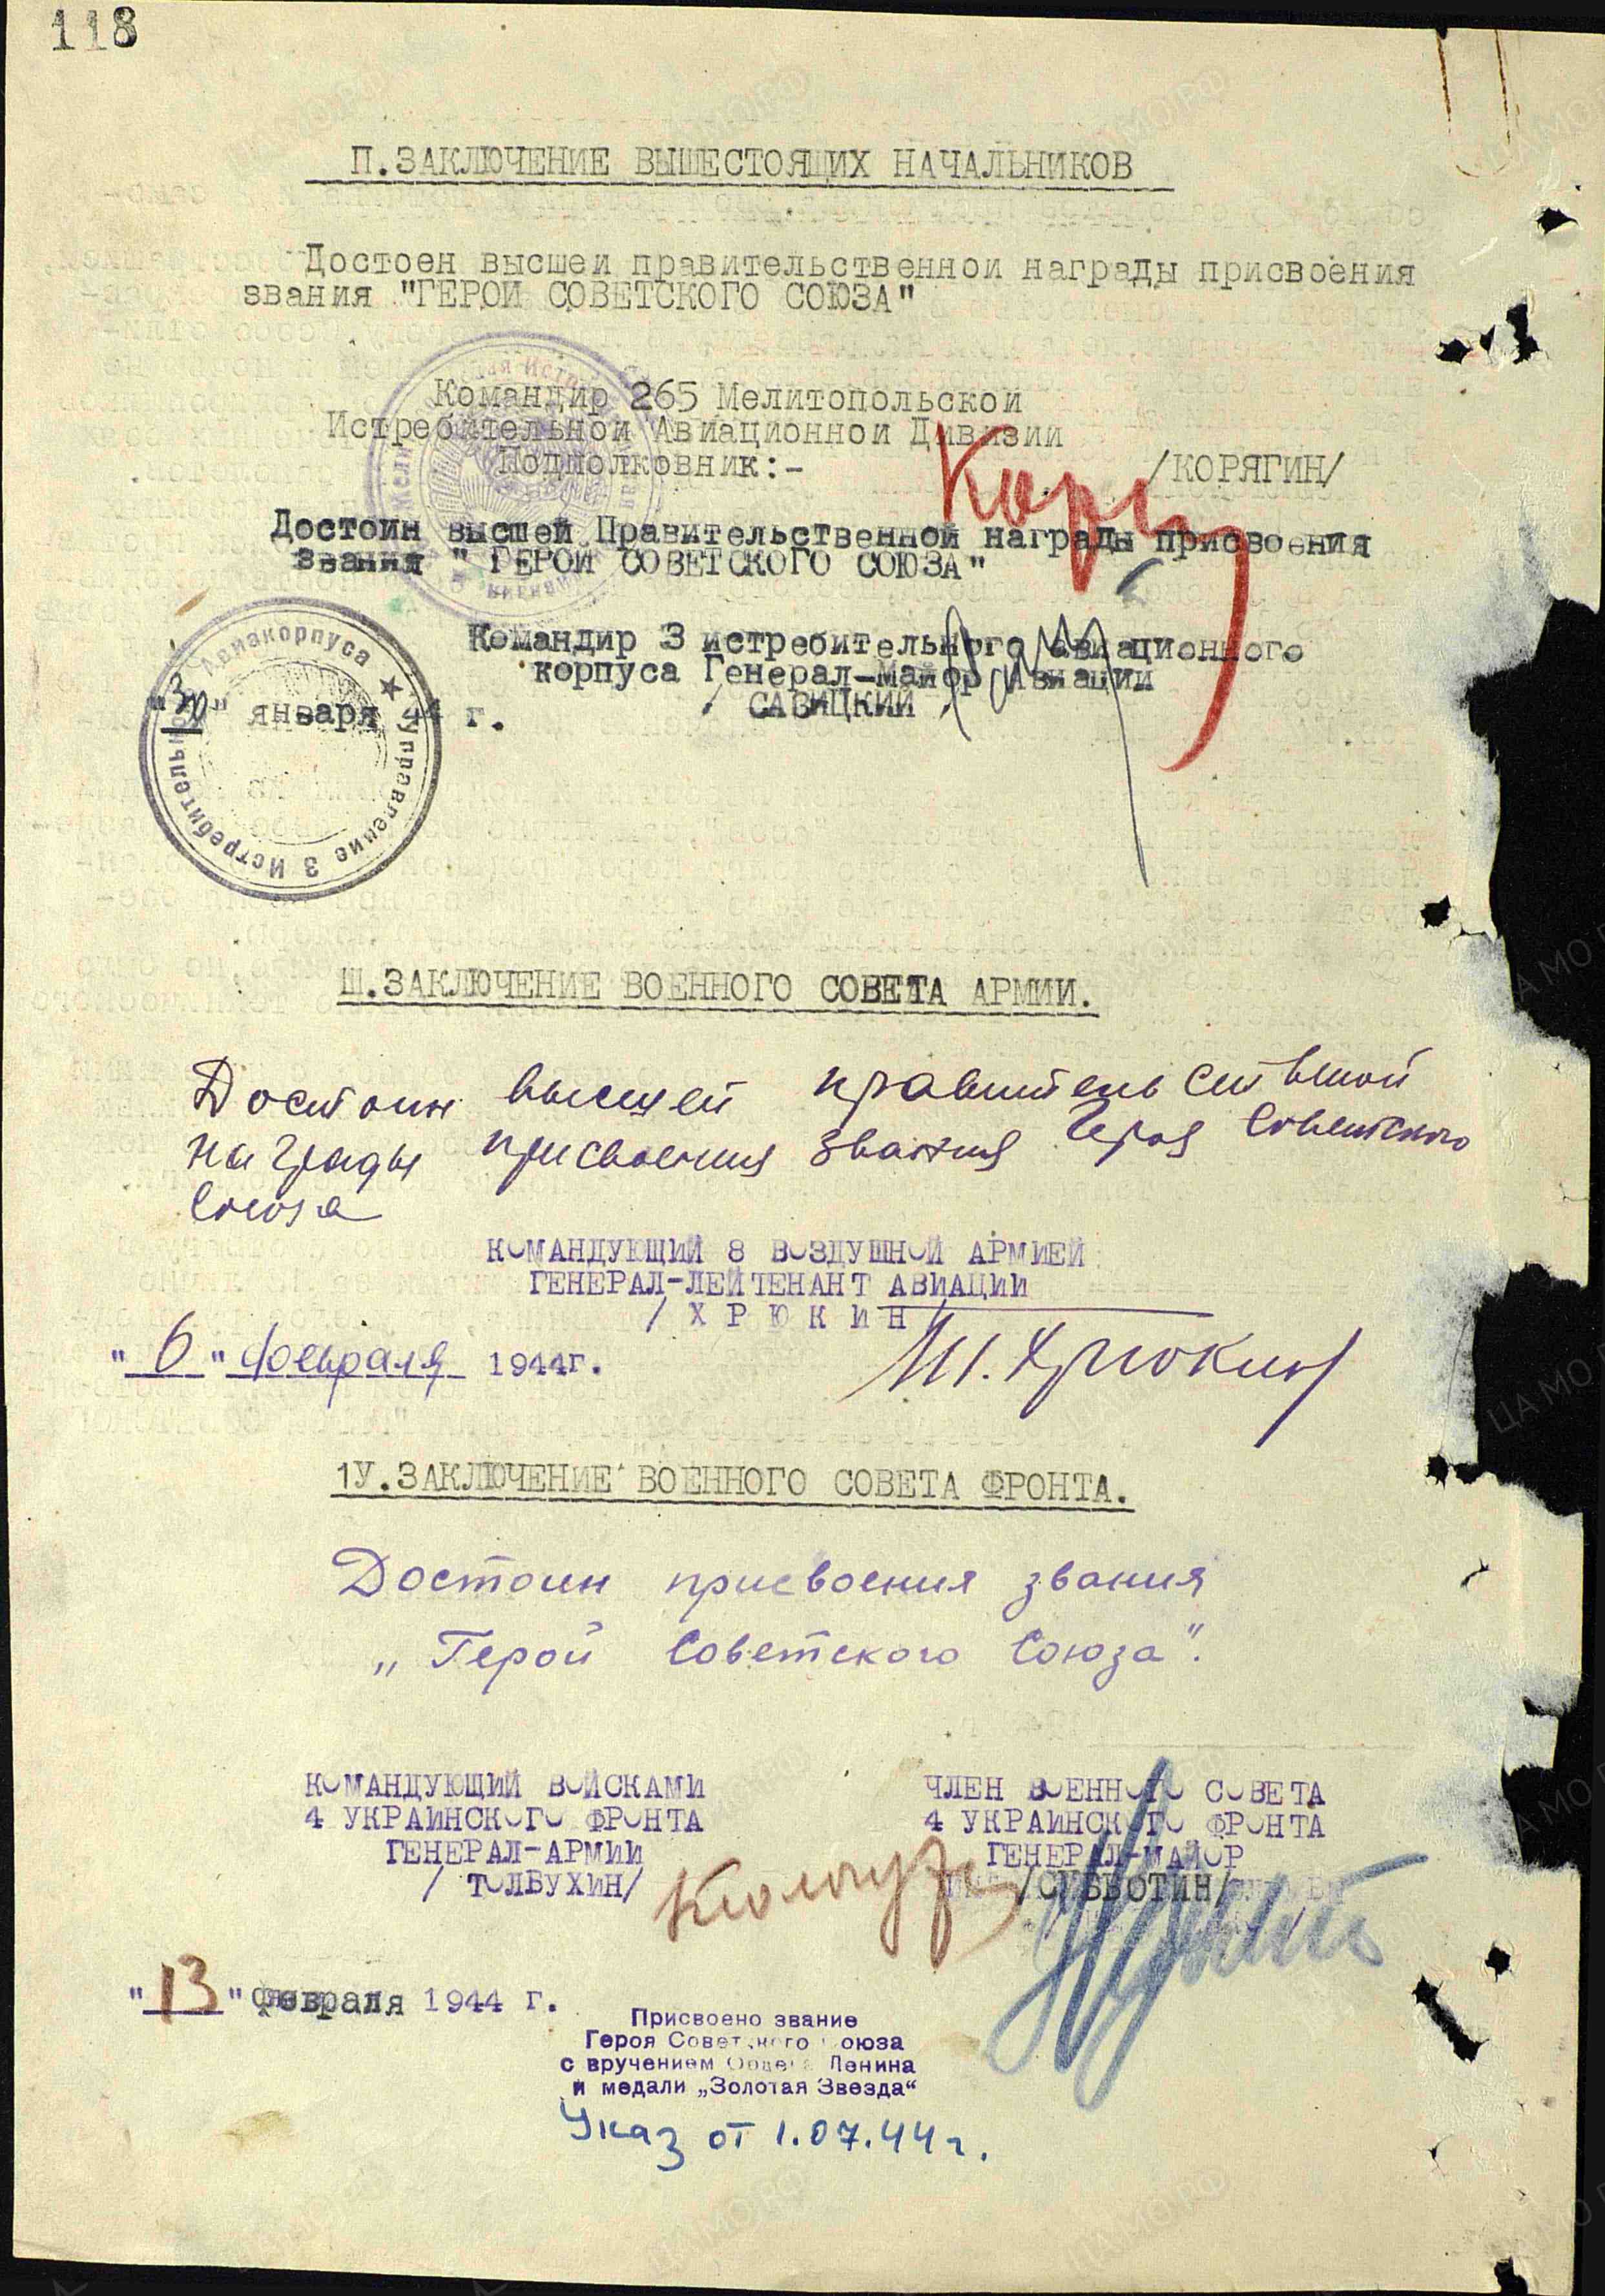 118
П.ЗАКЛЮЧЕНИЕ ВЫШЕСТОЯЩИХ НАЧАЛЬНИКОВ
Достоен высшей правительственной награды присвоения
звания "ГЕРОЙ СОВЕТСКОГО СОЮЗА"
Командир 265 Мелитопольской
Истребительной Авиационной Дивизии
Подполковник:- /КОРЯГИН/
Достоин высшей Правительственной награды присвоения
звания " ГЕРОЙ СОВЕТСКОГО СОЮЗА"
Командир 3 истребительного авиационного
корпуса Генерал-майор Авиации
/ САВИЦКИЙ /
"30" января 44 г.
Управление 3 Истребительного Авиакорпуса
Ш.ЗАКЛЮЧЕНИЕ ВОЕННОГО СОВЕТА АРМИИ.
Достоин высшей правительственной
награды присвоения звания Героя Советского
Союза
КОМАНДУЮЩИЙ 8 ВОЗДУШНОЙ АРМИЕЙ
ГЕНЕРАЛ-ЛЕЙТЕНАНТ АВИАЦИИ
/ Х Р Ю К И Н /
"6" февраля 1944г. Т.Хрюкин
1У.ЗАКЛЮЧЕНИЕ ВОЕННОГО СОВЕТА ФРОНТА.
Достоин присвоения звания
„Герой Советского Союза".
КОМАНДУЮЩИЙ ВОЙСКАМИ
4 УКРАИНСКОГО ФРОНТА
ГЕНЕРАЛ-АРМИИ
/ ТОЛБУХИН/
ЧЛЕН ВОЕННОГО СОВЕТА
4 УКРАИНСКОГО ФРОНТА
ГЕНЕРАЛ-МАЙОР
/СУББОТИН/
"13" февраля 1944 г.
Присвоено звание
Героя Советского Союза
с вручением Ордена Ленина
и медали „Золотая Звезда“
Указ от 1.07.44 г.
ЦА МО РФ